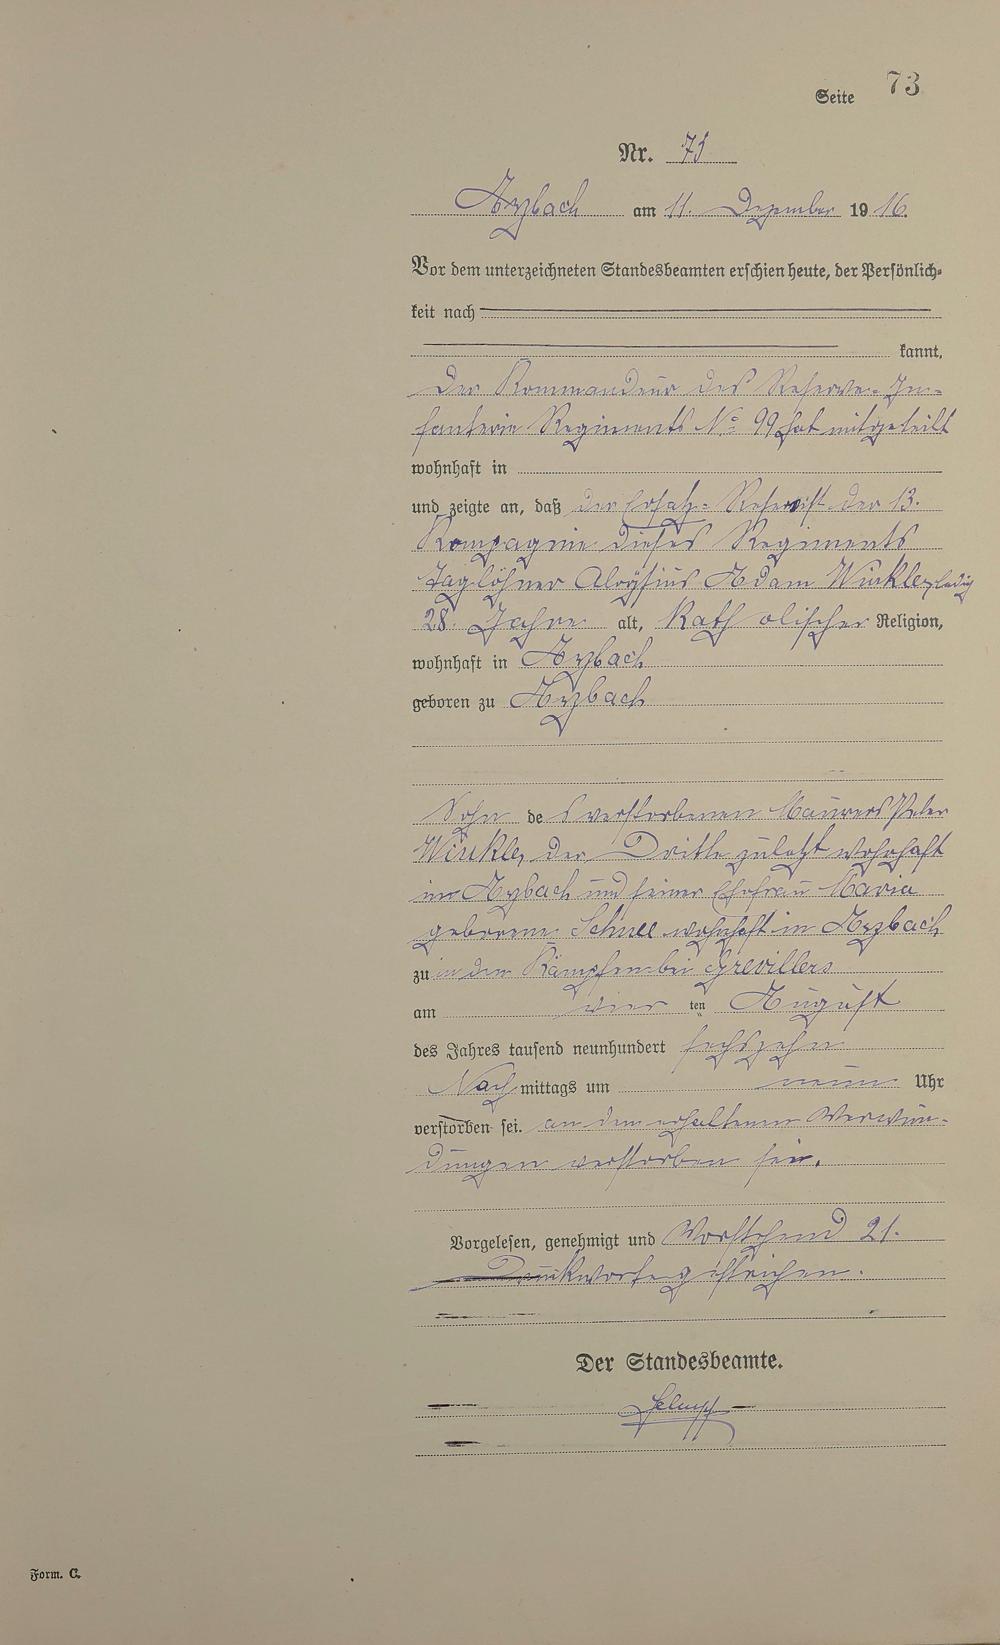 Seite 73
Nr. 73
Arzbach am 11. Dezember 1916.
Vor dem unterzeichneten Standesbeamten erschien heute, der Persönlich-
keit nach
kannt,
Der Kommandeur des Reserve-In-
fanterie Regiments No 99 hat mitgeteilt
wohnhaft in
und zeigte an, daß der Ersatz-Reservist der 13.
Kompagnie dieses Regiments
Taglöhner Aloÿsius Adam Winkler, ledig
28 Jahre alt, katholischer Religion,
wohnhaft in Arzbach
geboren zu Arzbach
Sohn des verstorbenen Maurers Peter
Winkler der Dritte zuletzt wohnhaft
in Arzbach und seiner Ehefrau Maria
geborene Schnee wohnhaft in Arzbach
zu in den Kämpfen bei Grevillers
am vier ten August
des Jahres tausend neunhundert sechszehn
Nachmittags um neun Uhr
verstorben sei. an den erhaltenen Verwun-
dungen verstorben sei.
Vorgelesen, genehmigt und Vorstehend 21.
Druckworte gestrichen.
Der Standesbeamte.
Form. C.